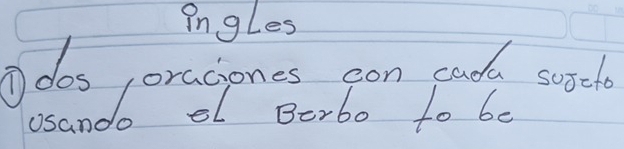 ingles
① dos, oraciones con cada sujeto
usando el Berbo to be